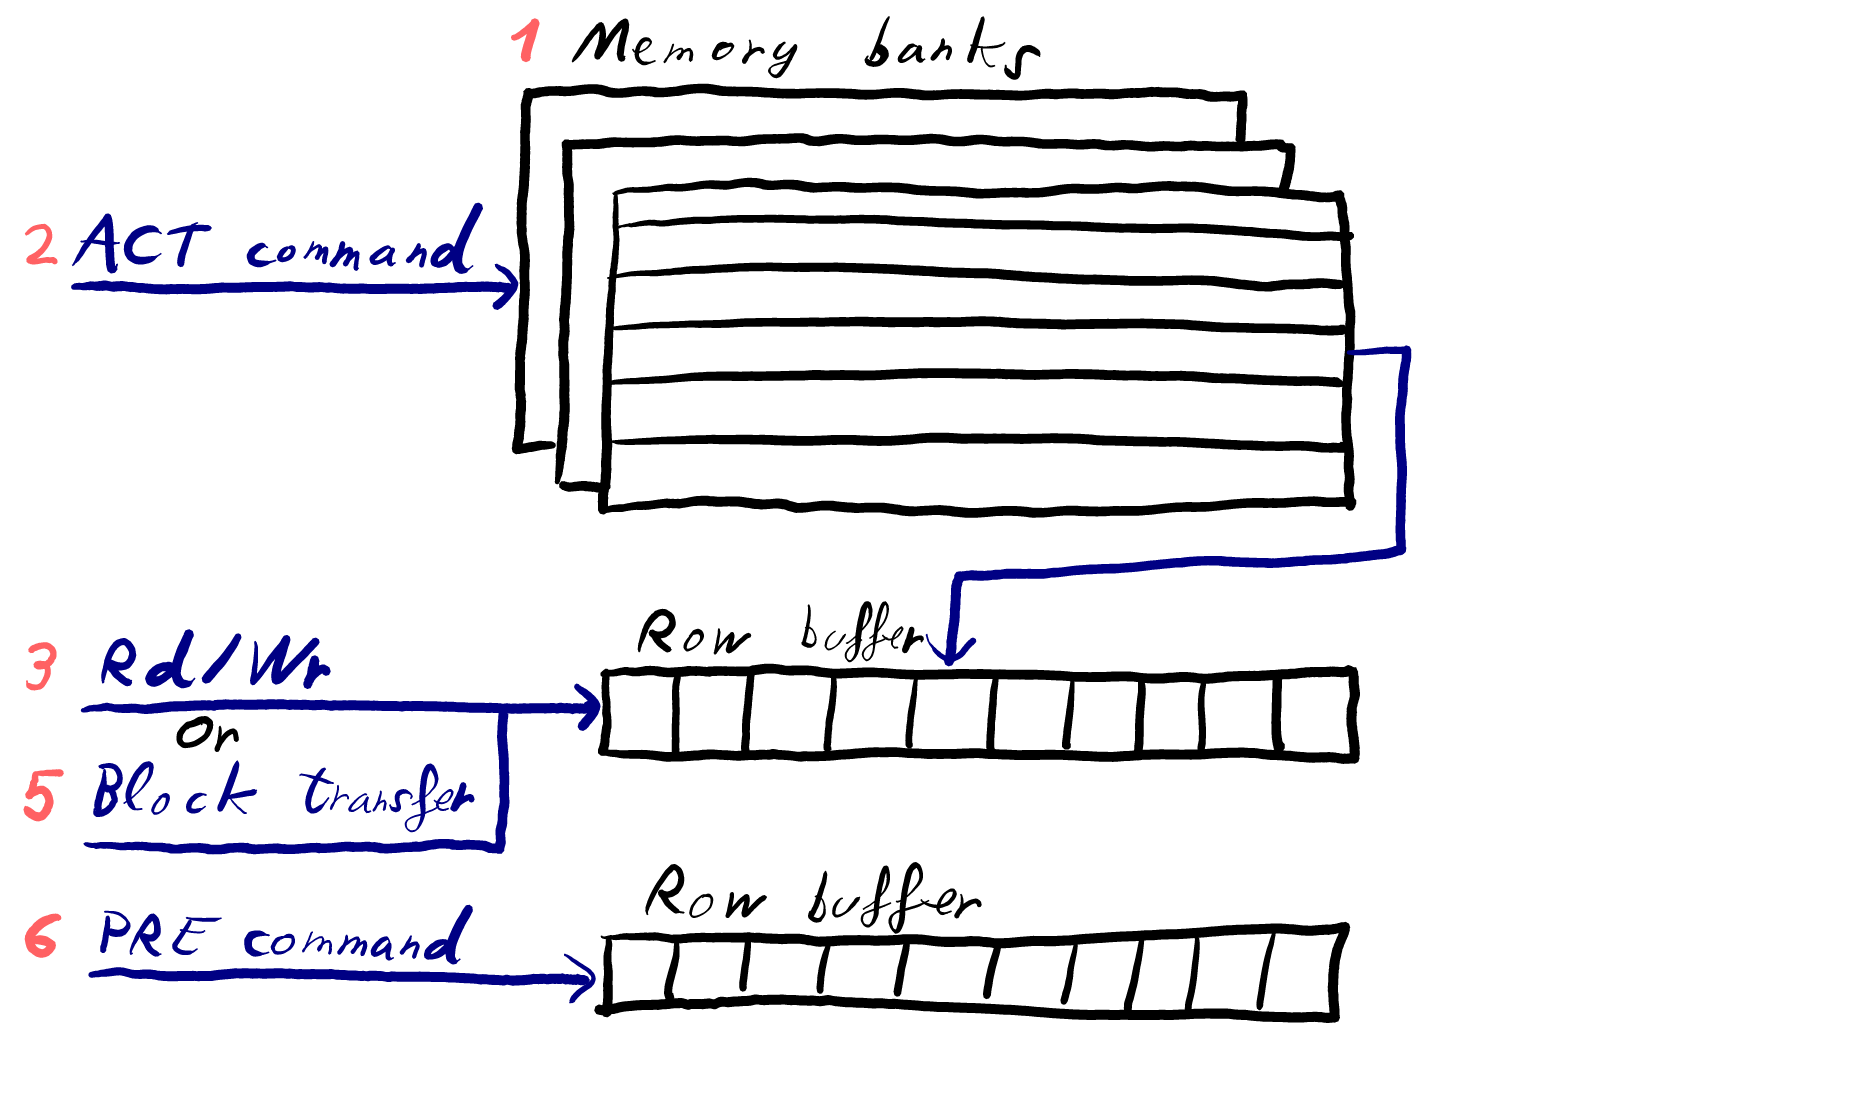 1 Memory banks
2 ACT command
Row buffer
3 Rd/Wr
Or
5 Block transfer
Row buffer
6 PRE command